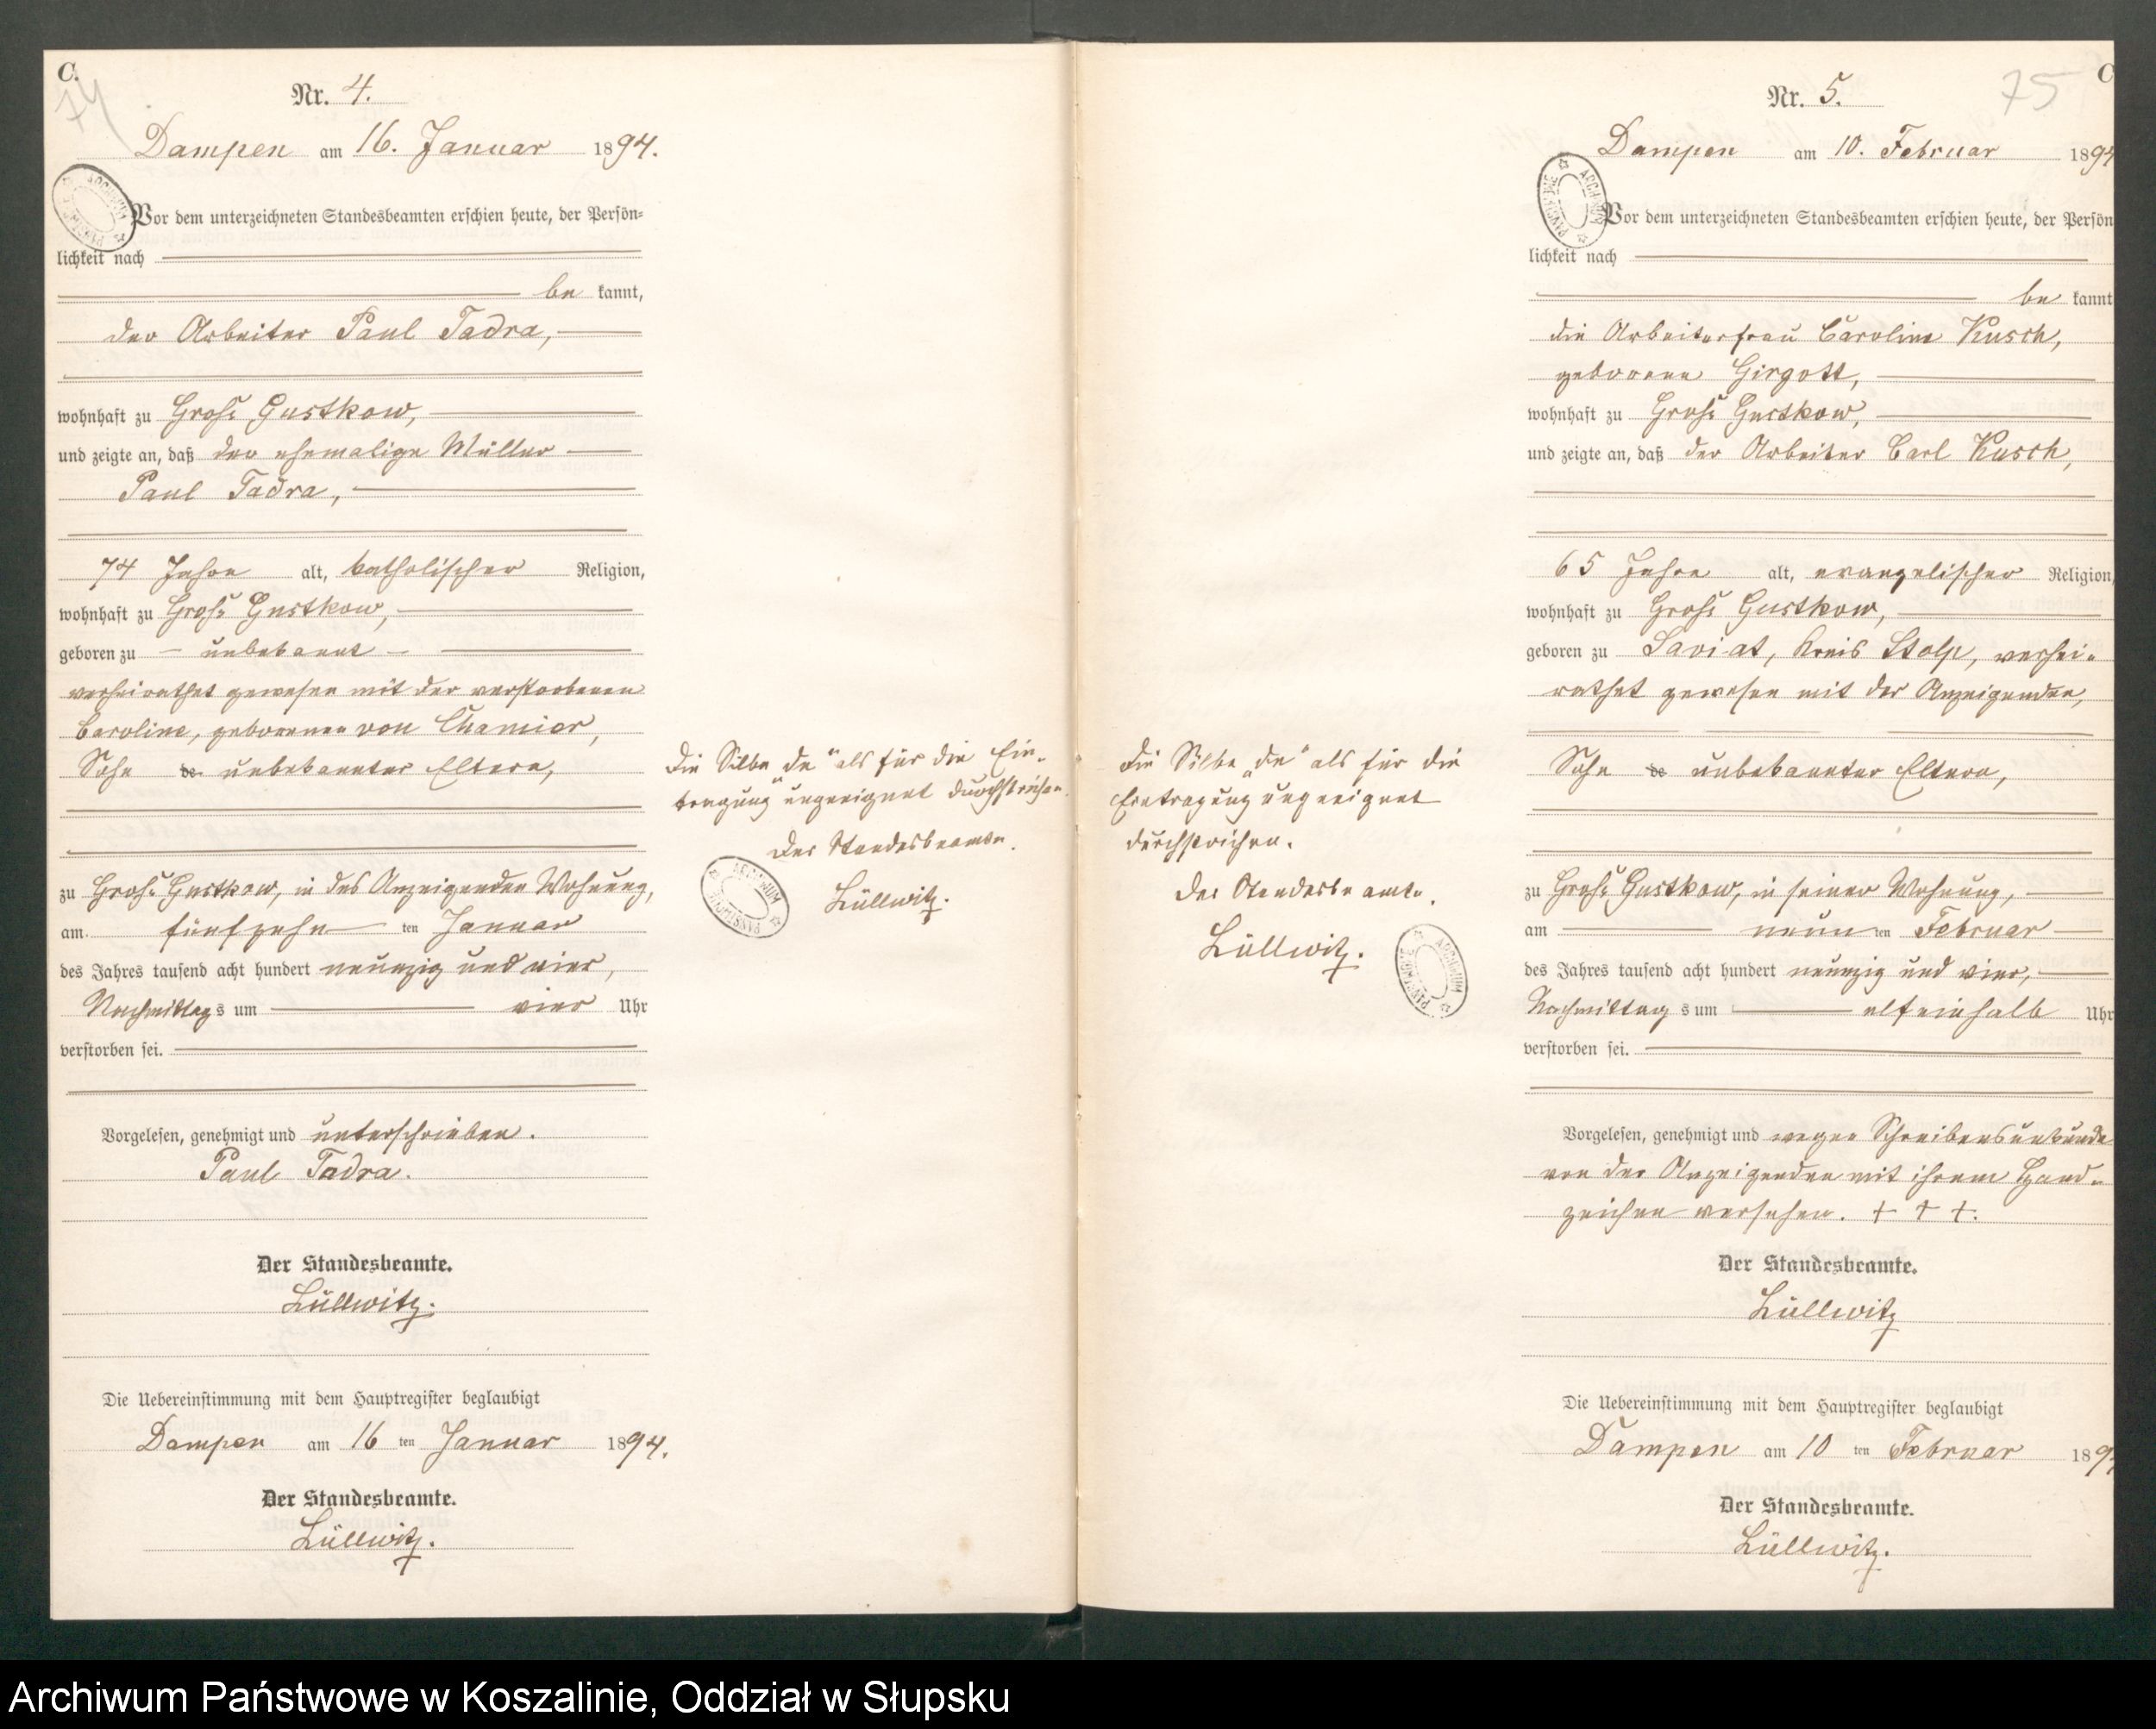 C.
74
Nr. 4.
Dampen am 16. Januar 1894.
Vor dem unterzeichneten Standesbeamten erschien heute, der Persön=
lichkeit nach
be kannt,
der Arbeiter Paul Tadra,
wohnhaft zu Groß Gustkow,
und zeigte an, daß der ehemalige Müller
Paul Tadra,
74 Jahre alt, katholischer Religion,
wohnhaft zu Groß Gustkow,
geboren zu - unbekannt -
verheirathet gewesen mit der verstorbenen
Caroline, geborenen von Chamier,
Sohn de unbekannter Eltern,
zu Groß Gustkow, in des Anzeigenden Wohnung,
am fünfzehn ten Januar
des Jahres tausend acht hundert neunzig und vier,
Nachmittags um vier Uhr
verstorben sei.
Vorgelesen, genehmigt und unterschrieben.
Paul Tadra.
Der Standesbeamte.
Lüllwitz.
Die Uebereinstimmung mit dem Hauptregister beglaubigt
Dampen am 16 ten Januar 1894.
Der Standesbeamte.
Lüllwitz.
Die Silbe „de" als für die Ein-
tragung ungeeignet durchstrichen.
Der Standesbeamte.
Lüllwitz.
ARCHIWUM PAŃSTWOWE
Die Silbe „de" als für die
Eintragung ungeeignet
durchstrichen.
Der Standesbeamte.
Lüllwitz.
ARCHIWUM PAŃSTWOWE
C
75
Nr. 5.
Dampen am 10. Februar 1894
Vor dem unterzeichneten Standesbeamten erschien heute, der Persön
lichkeit nach
be kannt
die Arbeiterfrau Caroline Kusch,
geborene Girgott,
wohnhaft zu Groß Gustkow,
und zeigte an, daß der Arbeiter Carl Kusch,
65 Jahre alt, evangelischer Religion,
wohnhaft zu Groß Gustkow,
geboren zu Saviat, Kreis Stolp, verhei-
rathet gewesen mit der Anzeigenden,
Sohn de unbekannter Eltern,
zu Groß Gustkow, in seiner Wohnung,
am neun ten Februar
des Jahres tausend acht hundert neunzig und vier,
Nachmittag s um elfeinhalb Uhr
verstorben sei.
Vorgelesen, genehmigt und wegen Schreibensunkunde
von der Anzeigenden mit ihrem Hand-
zeichen versehen. + + +.
Der Standesbeamte.
Lüllwitz
Die Uebereinstimmung mit dem Hauptregister beglaubigt
Dampen am 10 ten Februar 189
Der Standesbeamte.
Lüllwitz.
Archiwum Państwowe w Koszalinie, Oddział w Słupsku